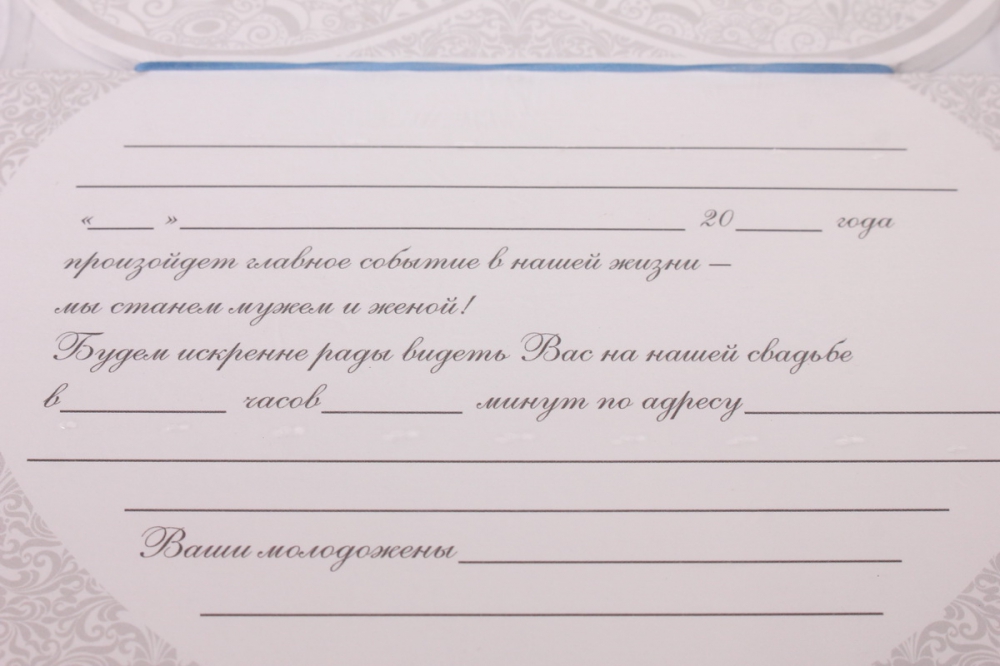 «____ »____________________ 20____ года
произойдет главное событие в нашей жизни –
мы станем мужем и женой!
Будем искренне рады видеть Вас на нашей свадьбе
в__________ часов________ минут по адресу______________
Ваши молодожены__________________________